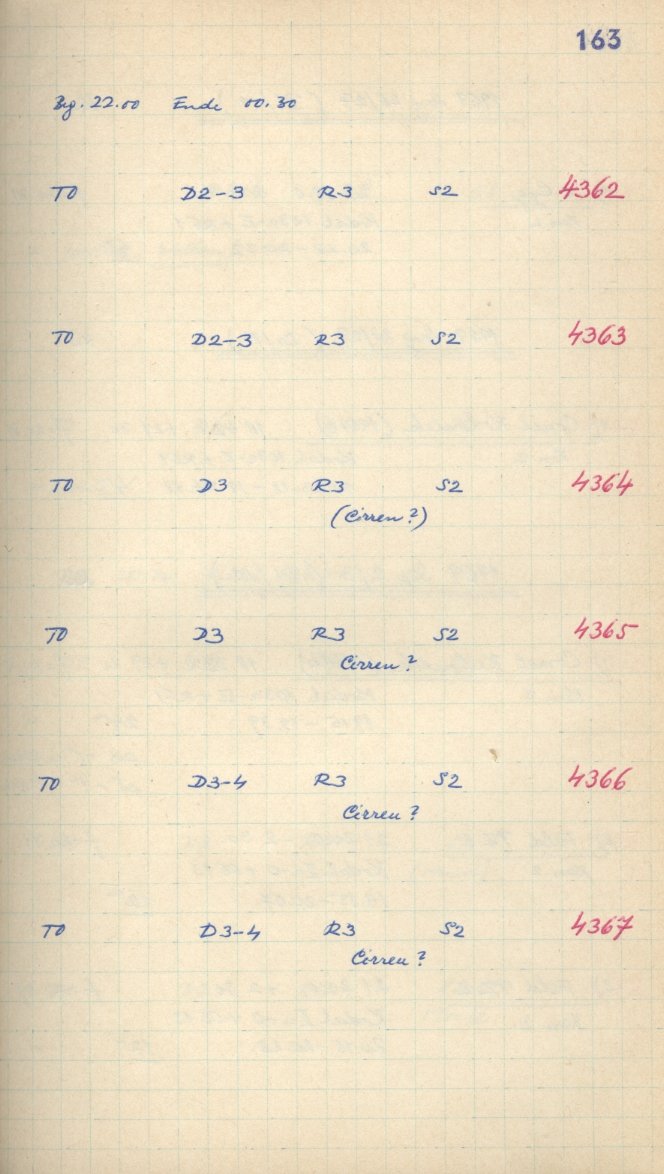 163
Bg. 22.00 Ende 00.30
T0 D2-3 R3 S2 4362
T0 D2-3 R3 S2 4363
T0 D3 R3 S2 4364
(Cirren?)
T0 D3 R3 S2 4365
Cirren?
T0 D3-4 R3 S2 4366
Cirren?
T0 D3-4 R3 S2 4367
Cirren?